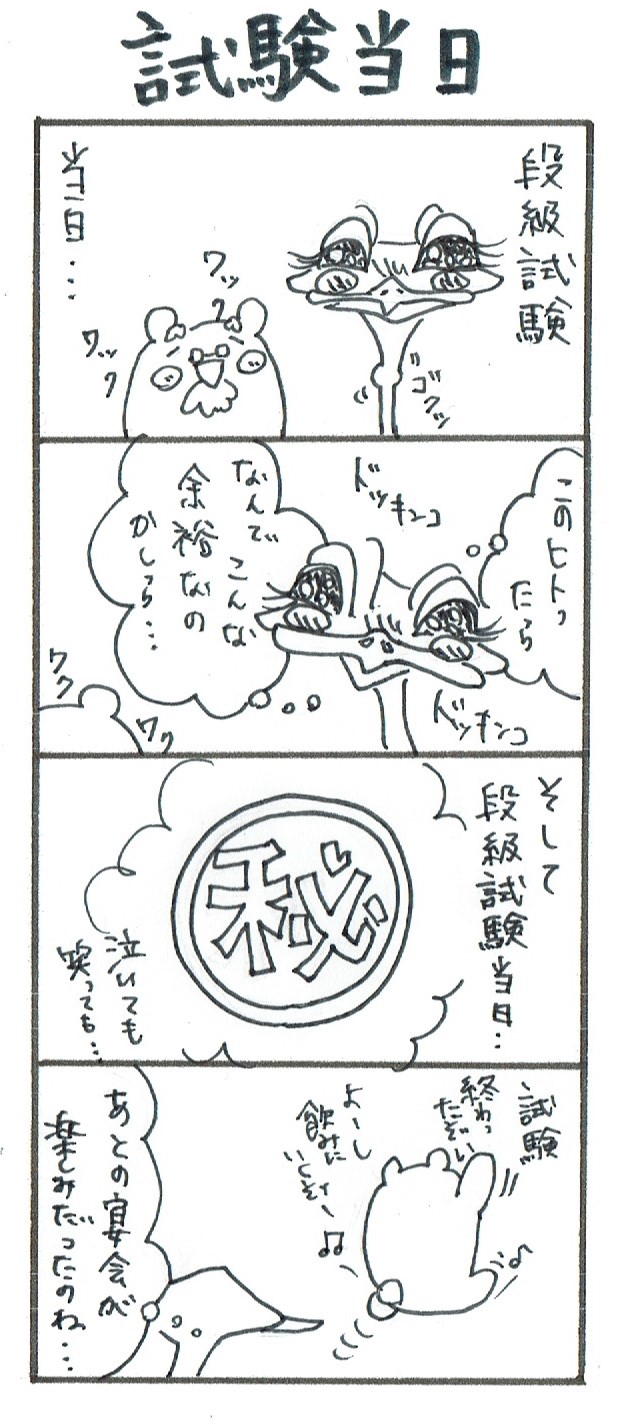 試験当日
段級試験
当日…
ゴクッ
ワック
ワック
このヒトっ
たら
ドッキンコ
なんで
こんな
余裕なの
かしら…
ドッキンコ
ワク
ワク
そして
段級試験当日…
秘
泣いても
笑っても…
試験
終わっ
たぞい
よーし
飲みに
いくぞぃ〜
あとの宴会が
楽しみだったのね…